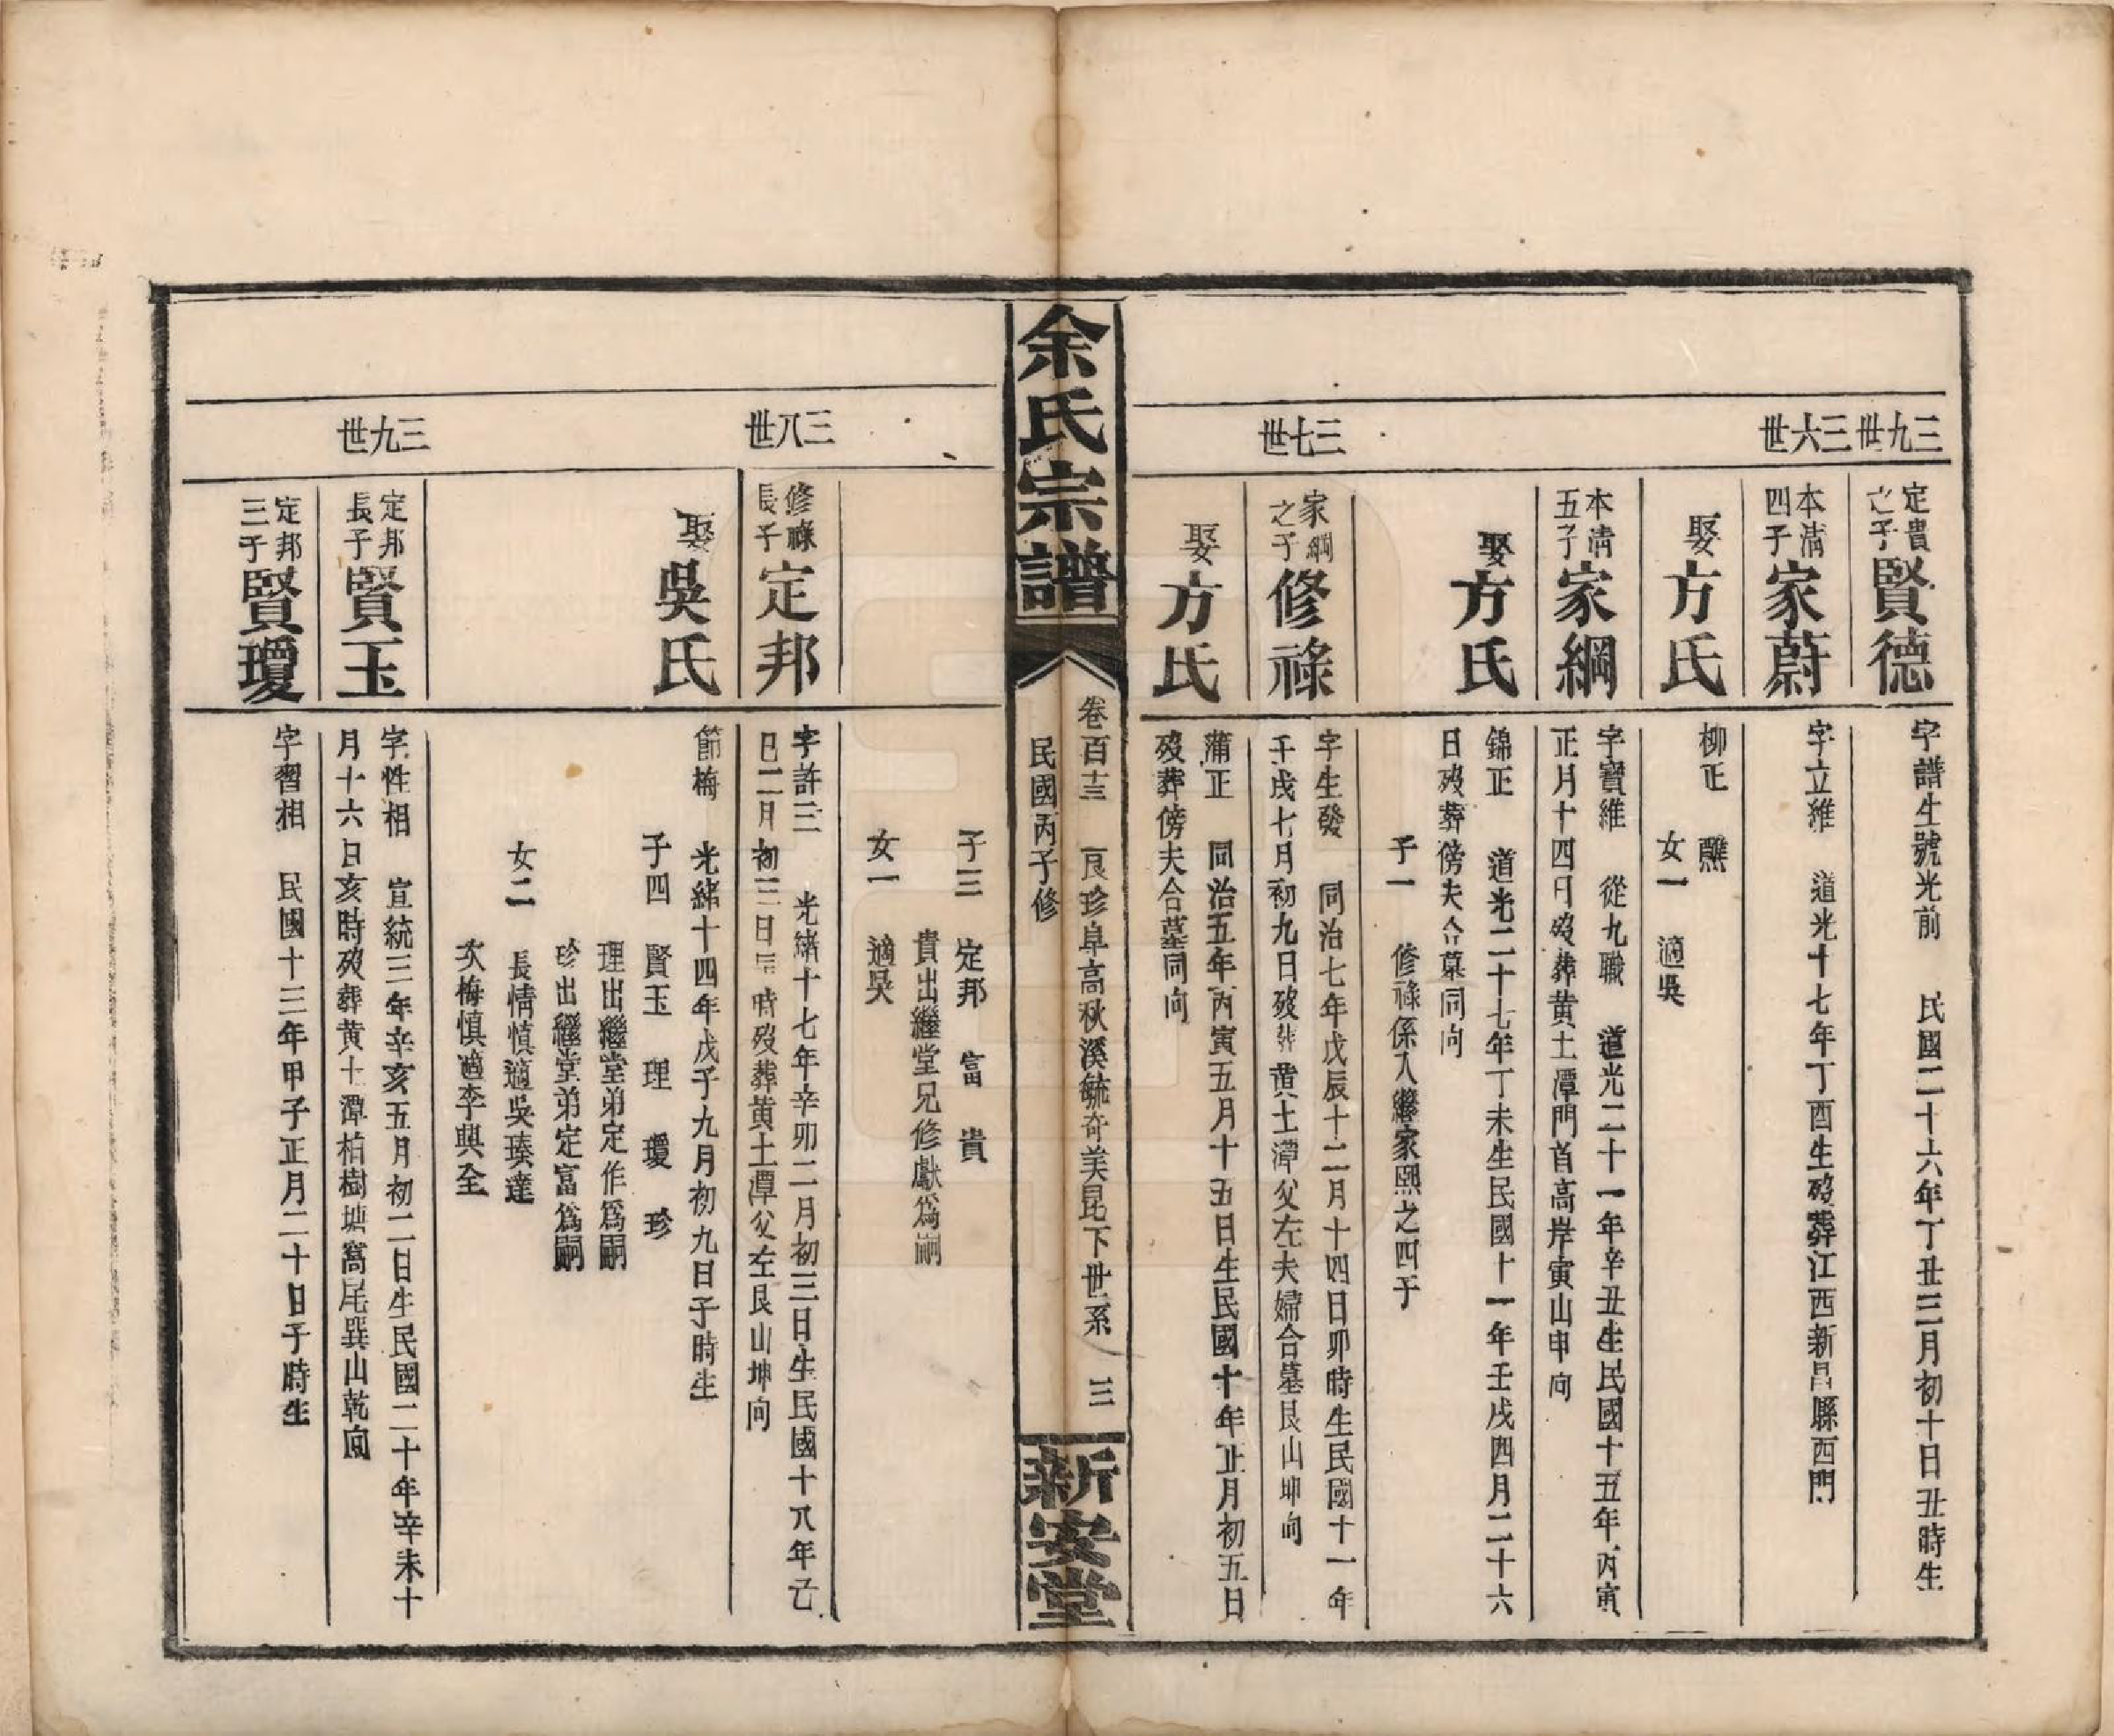 三九世
定貴
之子
賢德
字譜生號光前　民國二十六年丁丑三月初十日丑時生
三六世
本淸
四子
家蔚
字立維　道光十七年丁酉生歿葬江西新昌縣西門
娶方氏
柳正
女一　適吳
本淸
五子
家綱
字寶維　從九職　道光二十一年辛丑生民國十五年丙寅
正月十四日歿葬黃土潭門首高岸寅山申向
娶方氏
錦正　道光二十七年丁未生民國十一年壬戌四月二十六
日歿葬傍夫合墓同向
子一　修祿係入繼家熙之四子
三七世
家綱
之子
修祿
字生發　同治七年戊辰十二月十四日卯時生民國十一年
壬戌七月初九日歿葬黃土潭父左夫婦合墓艮山坤向
娶方氏
蒲正　同治五年丙寅五月十五日生民國十年正月初五日
歿葬傍夫合墓同向
余氏宗譜
卷百十三　良珍阜高秋溪毓奇美昆下世系　三
民國丙子修
新安堂
子三　定邦　富　貴
貴出繼堂兄修獻爲嗣
女一　適吳
三八世
修祿
長子
定邦
字許三　光緒十七年辛卯二月初三日生民國十八年己
巳二月初三日　時歿葬黃土潭父左艮山坤向
娶吳氏
節梅　光緒十四年戊子九月初九日子時生
子四　賢玉　理　瓊　珍
理出繼堂弟定作爲嗣
珍出繼堂弟定富爲嗣
女二　長情慎適吳瑧達
次梅慎適李與全
三九世
定邦
長子
賢玉
字性相　宣統三年辛亥五月初二日生民國二十年辛未十
月十六日亥時歿葬黃土潭柏樹塘窩尾巽山乾向
定邦
三子
賢瓊
字習相　民國十三年甲子正月二十日子時生